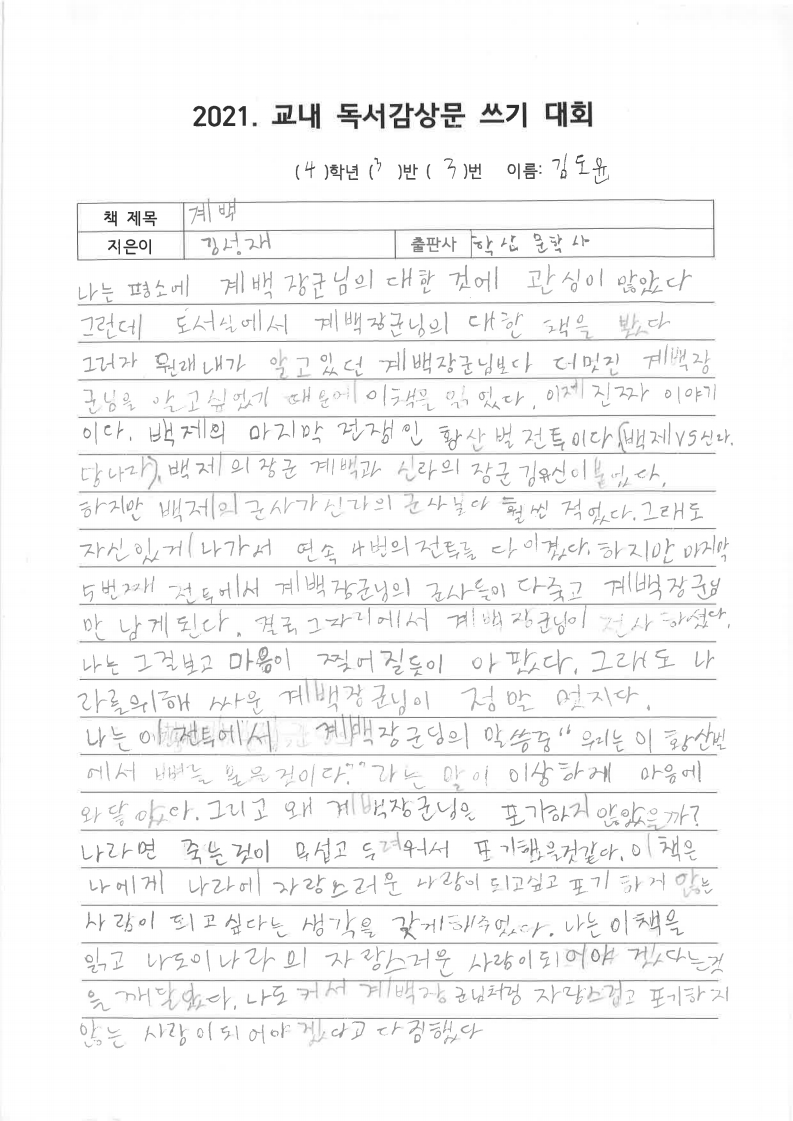 2021. 교내 독서감상문 쓰기 대회
( 4 )학년 ( 3 )반 ( 3 )번 이름: 김도윤
책 제목 계백
지은이 김성재 출판사 학산 문학사
나는 평소에 계백 장군님의 대한 것에 관심이 많았다
그런데 도서실에서 계백장군님의 대한 책을 봤다
그러자 원래내가 알고있던 계백장군님보다 더멋진 계백장
군님을 알고싶었기 때문에 이책을 읽었다. 이제 진짜 이야기
이다. 백제의 마지막 전쟁인 황산벌전투이다(백제VS신라.
당나라). 백제의장군 계백과 신라의 장군 김유신이 붙었다.
하지만 백제의군사가신라의 군사보다 훨씬 적었다.그래도
자신있게나가서 연속 4번의전투를 다이겼다. 하지만 마지막
5번째 전투에서 계백장군님의 군사들이 다죽고 계백장군님
만 남게된다. 결국 그자리에서 계백장군님이 전사하셨다.
나는 그걸보고 마음이 찢어질듯이 아팠다. 그래도 나
라를위해 싸운 계백장군님이 정말 멋지다.
나는 이전투에서 계백장군님의 말씀중 "우리는 이 황산벌
에서 뼈를 묻을것이다." 라는 말이 이상하게 마음에
와닿았다. 그리고 왜 계백장군님은 포기하지않았을까?
나라면 죽는것이 무섭고 두려워서 포기했을것같다. 이책은
나에게 나라에 자랑스러운 사람이되고싶고 포기하지 않는
사람이 되고싶다는 생각을 갖게해주었다. 나는이책을
읽고 나도이나라의 자랑스러운 사람이되어야 겠다는것
을 깨달았다. 나도 커서 계백장군님처럼 자랑스럽고 포기하지
않는 사람이되어야겠다고 다짐했다